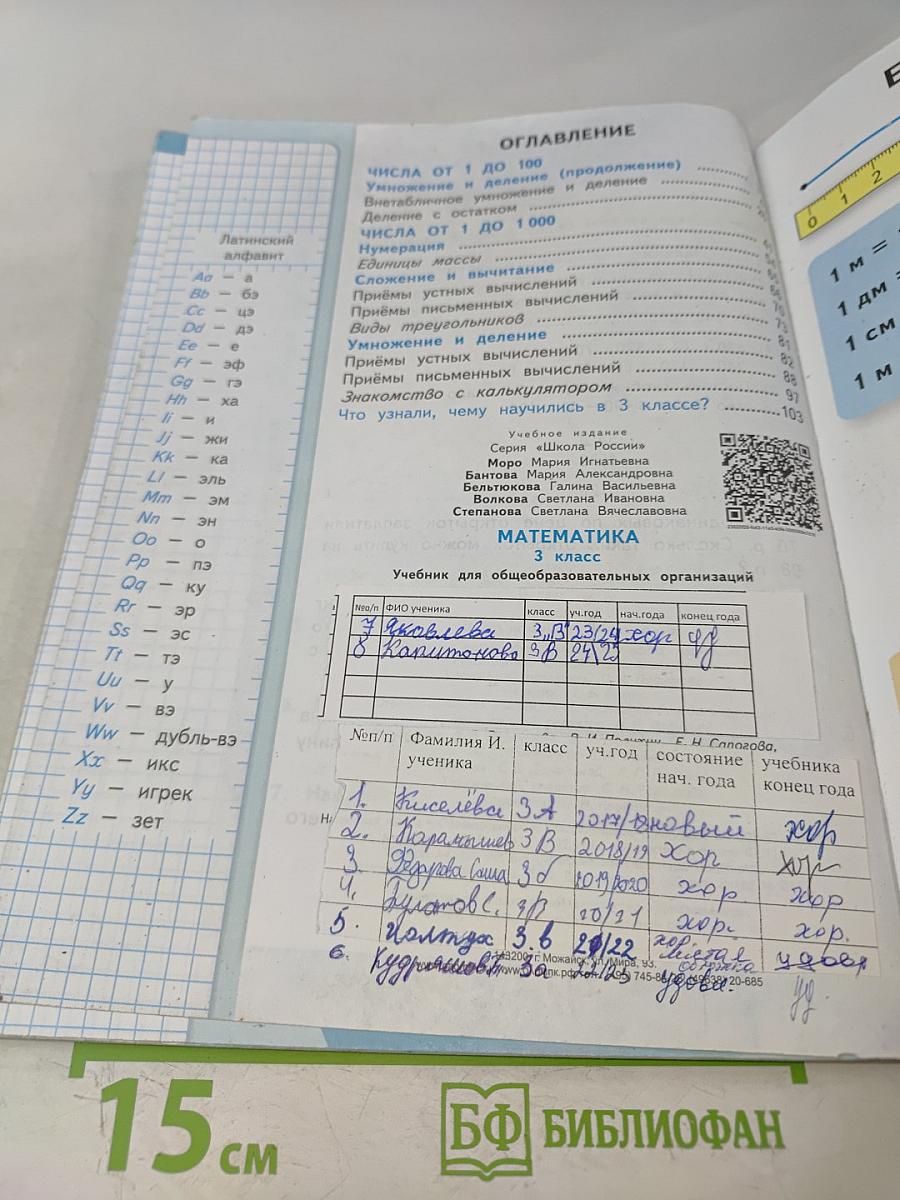 Латинский
алфавит
Aa — а
Bb — бэ
Cc — цэ
Dd — дэ
Ee — е
Ff — эф
Gg — гэ
Hh — ха
Ii — и
Jj — жи
Kk — ка
Ll — эль
Mm — эм
Nn — эн
Oo — о
Pp — пэ
Qq — ку
Rr — эр
Ss — эс
Tt — тэ
Uu — у
Vv — вэ
Ww — дубль-вэ
Xx — икс
Yy — игрек
Zz — зет
ОГЛАВЛЕНИЕ
ЧИСЛА ОТ 1 ДО 100
Умножение и деление (продолжение)
Внетабличное умножение и деление
Деление с остатком
ЧИСЛА ОТ 1 ДО 1 000
Нумерация
Единицы массы
Сложение и вычитание
Приёмы устных вычислений
Приёмы письменных вычислений
Виды треугольников 73
Умножение и деление 81
Приёмы устных вычислений 82
Приёмы письменных вычислений 88
Знакомство с калькулятором 97
Что узнали, чему научились в 3 классе? 103
Учебное издание
Серия «Школа России»
Моро Мария Игнатьевна
Бантова Мария Александровна
Бельтюкова Галина Васильевна
Волкова Светлана Ивановна
Степанова Светлана Вячеславовна
МАТЕМАТИКА
3 класс
Учебник для общеобразовательных организаций
№п/п ФИО ученика класс уч.год нач.года конец года
7 Яковлева 3„В" 23/24 хор уд
8 Капитонова 3В 24/25
Е. Н. Сапогова,
№п/п Фамилия И. ученика класс уч.год состояние нач. года учебника конец года
1. Киселёва 3А 2017/18 новый хор
2. 3В 2018/19 хор хор
3 Саша 3б 2019/2020 хор хор
4. Булатов С. 20/21 хор. хор.
5. 3.в 21/22 хор.
6. Кудряшов 3а 22/23 удовл. уд
г. Можайск, ул. Мира, 93.
20-685
0 1 2
1 м =
1 дм =
1 см
1 м
15 см
БФ БИБЛИОФАН